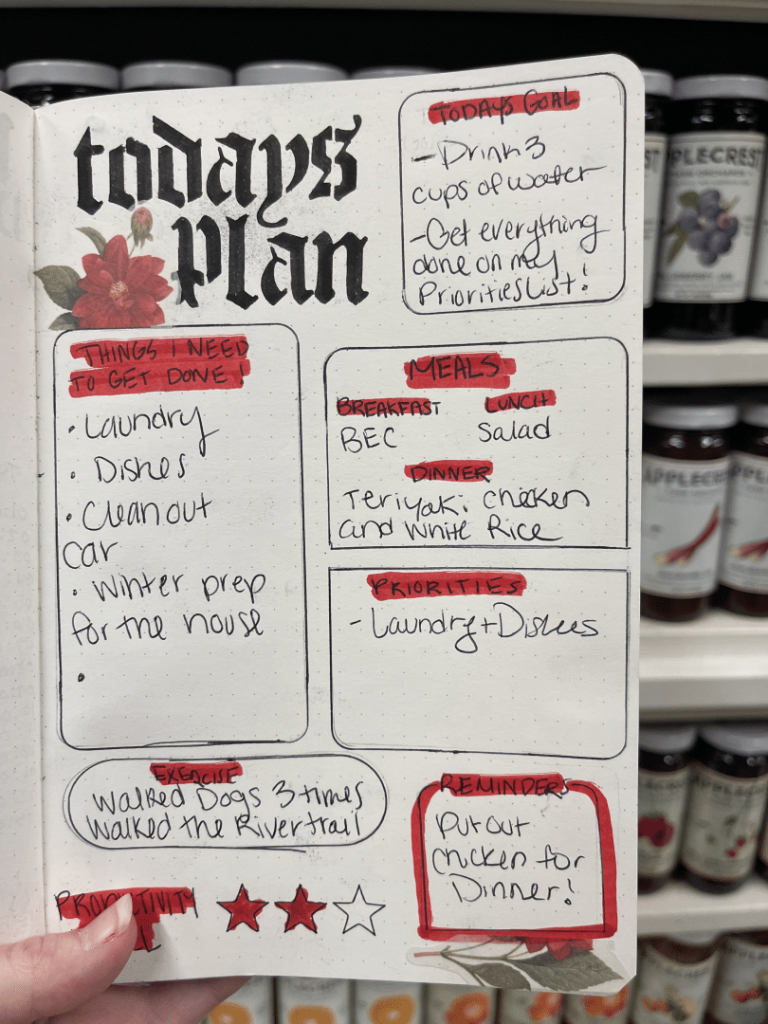 todays
Plan
TODAYS GOAL
- Drink 3
cups of water
- Get everything
done on my
Priorities List!
THINGS I NEED
TO GET DONE!
• Laundry
• Dishes
• Clean out
car
• Winter prep
for the house
•
MEALS
BREAKFAST
BEC
LUNCH
Salad
DINNER
Teriyaki chicken
and White Rice
PRIORITIES
- Laundry + Dishes
EXERCISE
Walked Dogs 3 times
Walked the River trail
REMINDERS
Put out
chicken for
Dinner!
PRODUCTIVITY
PLECREST
APPLECREST
APPLECRES